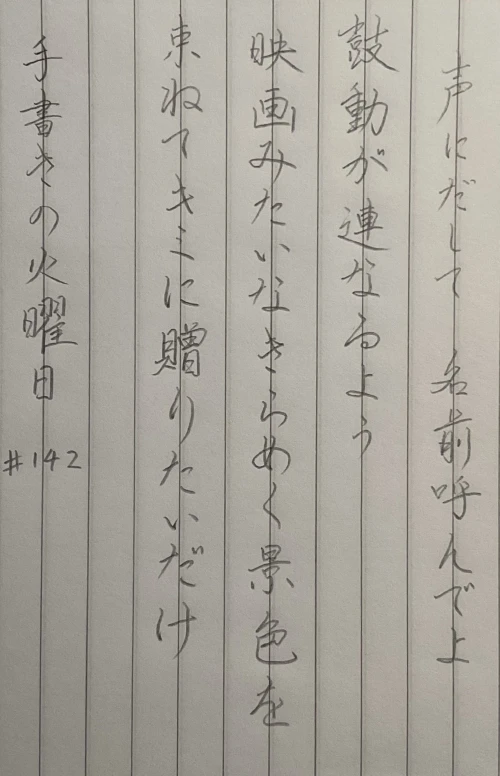 声にだして 名前呼んでよ
鼓動が連なるよう
映画みたいなきらめく景色を
束ねてキミに贈りたいだけ
手書きの火曜日 #142